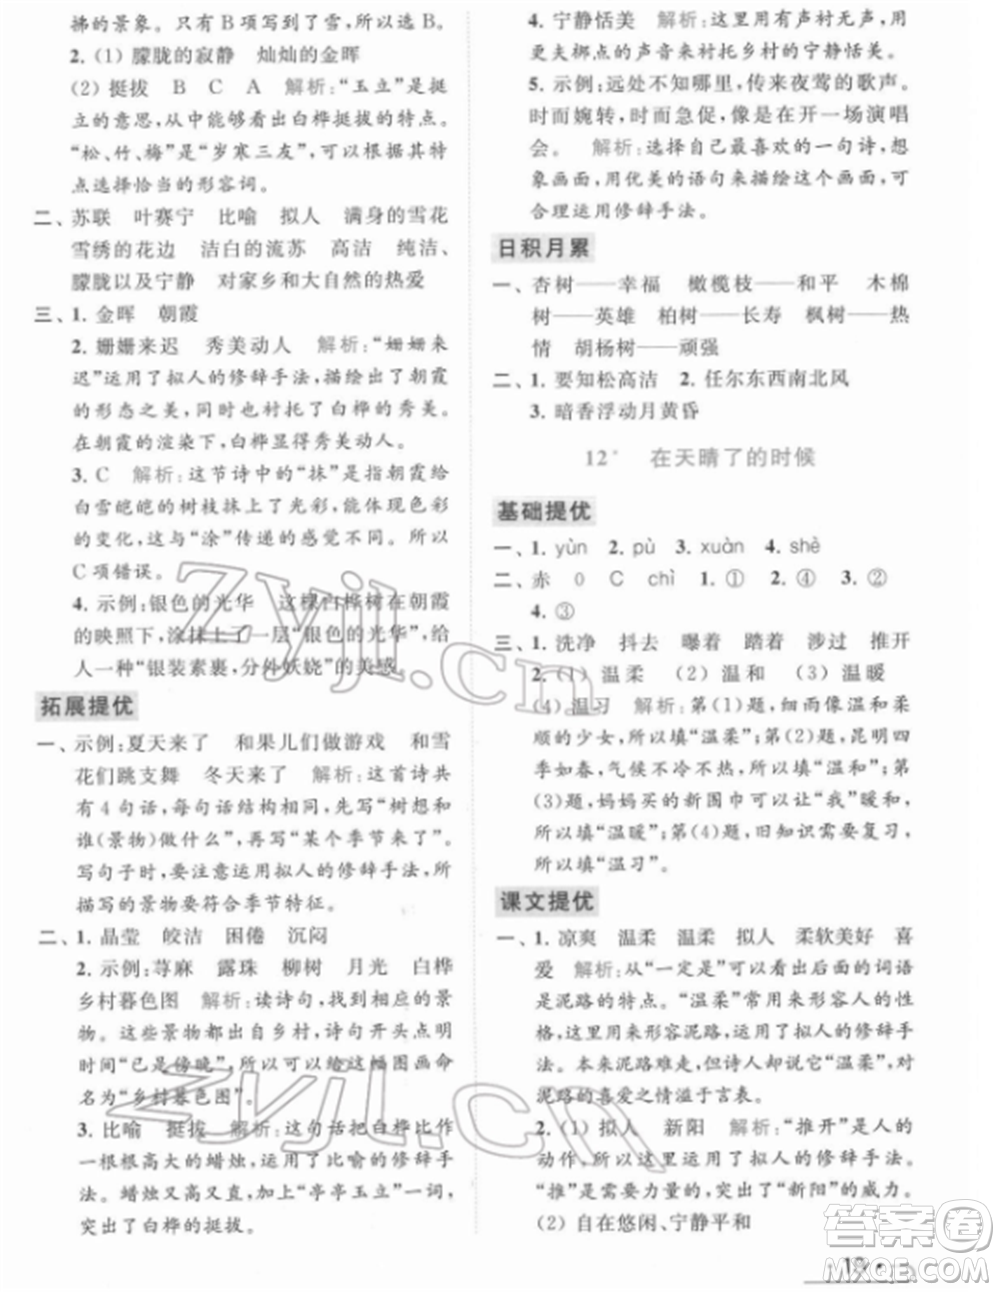 拂的景象。只有 B 项写的是景色, 所以选 B。
2. (1) 朦胧的寂静 灿灿的金晖
(2) 挺拔 B C A 解析:“玉立”是挺
立的意思,从中能看出白桦挺拔的特点。
“松、竹、梅”是“岁寒三友”,根据其特
点选择恰当的形容词。
二、苏联 叶赛宁 比喻 拟人 满身的雪花
雪绣的花边 洁白的流苏 高洁 纯洁、
朦胧以及宁静 对家乡和大自然的热爱
三、1. 金晖 朝霞
2. 姗姗来迟 秀美动人 解析:“姗姗来
迟”运用了拟人的修辞手法,描绘出朝霞
的形态之美,同时也衬托了白桦的秀美。
在朝霞的渲染下,白桦显得秀美动人。
3. C 解析:这节诗中的“抹”是指朝霞给
白雪皑皑的树枝抹上了光彩,能体现色彩
的变化,这与“涂”传递的感觉不同。所以
C 项错误。
4. 示例:银色的光华 这棵白桦树在朝霞
的映照下,涂抹上了一层“银色的光华”,给
人一种“银装素裹,分外妖娆”的美感。
拓展提优
一、示例:夏天来了 和果儿们做游戏 和雪
花们跳支舞 冬天来了 解析:这首诗共
有 4 句话,每句话结构相同,先写“树想和
谁(景物)做什么”,再写“某个季节来了”。
写句子时,要注意运用拟人的修辞手法,所
描写的景物要符合季节特征。
二、1. 晶莹 皎洁 困倦 沉闷
2. 示例:荨麻 露珠 柳树 月光 白桦
乡村暮色图 解析:读诗句,找到相应的景
物。这些景物都出自乡村,诗句开头点明
时间“已是傍晚”,所以可以给这幅图画命
名为“乡村暮色图”。
3. 比喻 挺拔 解析:这句话把白桦比作
一根高大的蜡烛,运用了比喻的修辞手
法。蜡烛又高又直,加上“亭亭玉立”一词,
突出了白桦的挺拔。
4. 宁静恬美 解析:这里用有声衬无声,用
更夫梆点的声音来衬托乡村的宁静恬美。
5. 示例:远处不知哪里,传来夜莺的歌声。
时而婉转,时而急促,像是在开一场演唱
会。 解析:选择自己最喜欢的一句诗,想
象画面,用优美的语句来描述这个画面,可
合理运用修辞手法。
日积月累
一、杏树——幸福 橄榄枝——和平 木棉
树——英雄 柏树——长寿 枫树——热
情 胡杨树——顽强
二、1. 要知松高洁 2. 任尔东西南北风
3. 暗香浮动月黄昏
12* 在天晴了的时候
基础提优
一、1. yùn 2. pù 3. xuàn 4. shè
二、赤 0 C chì 1. ① 2. ④ 3. ②
4. ③
三、1. 洗净 抖去 曝着 踏着 涉过 推开
2. (1) 温柔 (2) 温和 (3) 温暖
(4) 温习 解析:第(1)题,细雨像温柔和
顺的少女,所以填“温柔”;第(2)题,昆明四
季如春,气候不冷不热,所以填“温和”;第
(3)题,妈妈买的新围巾可以让“我”暖和,
所以填“温暖”;第(4)题,旧知识需要复习,
所以填“温习”。
课文提优
一、1. 凉爽 温柔 温柔 拟人 柔软美好 喜
爱 解析:从“一定是”可以看出后面的词语
是泥路的特点。“温柔”常用来形容人的性
格,这里用来形容泥路,运用了拟人的修辞手
法。本来泥路难走,但诗人却觉得“温柔”,对
泥路的喜爱之情溢于言表。
2. (1) 拟人 新阳 解析:“推开”是人的
动作,在这里运用了拟人的修辞手法。
“推”是需要力量的,突出了“新阳”的威力。
(2) 自在悠闲、宁静平和
19
zyjl.cn
zyjl.cn
答案圈
MXQE.COM